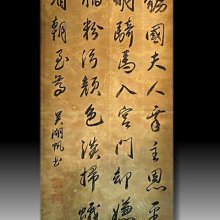 虢國夫人承主恩平
明騎馬入宮門却嫌
脂粉污顏色淡掃蛾
眉朝至尊 吳湖帆書